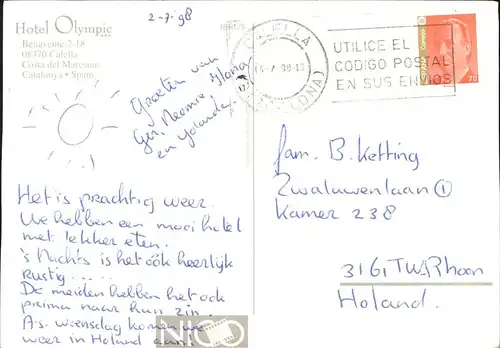 Hotel Olympic
Benavente 2-18
08370 Calella
Costa del Maresme
Catalunya • Spain
2-7-98
Groeten van
en Yolanda.
Het is prachtig weer.
We hebben een mooi hotel
met lekker eten.
's Nachts is het óók heerlijk
rustig.....
De meiden hebben het ook
prima naar hun zin.
A.s. woensdag komen we
weer in Holland aan.
CALELLA
UTILICE EL
CODIGO POSTAL
EN SUS ENVIOS
70
fam. B. Ketting
Zwaluwenlaan 1
Kamer 238
3161 TW Rhoon
Holand.